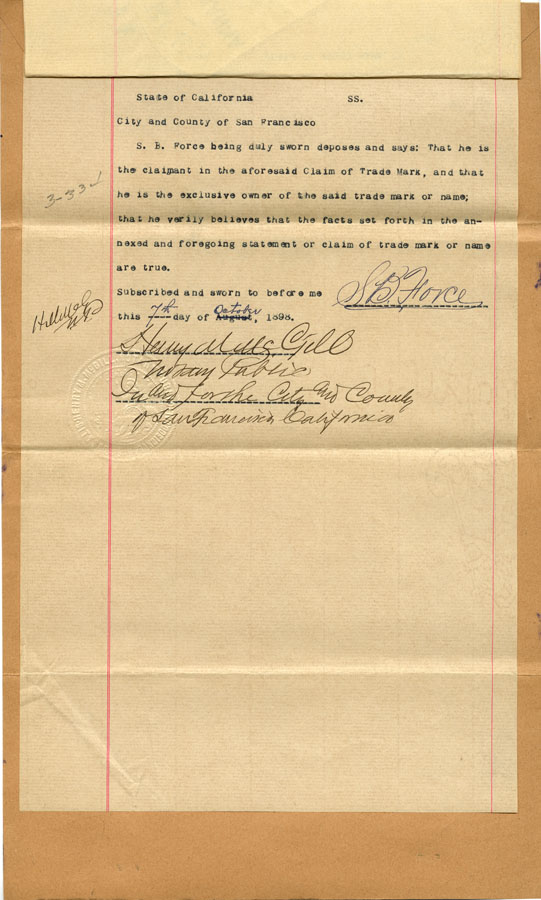 State of California SS.
City and County of San Francisco
S. B. Force being duly sworn deposes and says: That he is
the claimant in the aforesaid Claim of Trade Mark, and that
he is the exclusive owner of the said trade mark or name;
that he verily believes that the facts set forth in the an-
nexed and foregoing statement or claim of trade mark or name
are true.
Subscribed and sworn to before me
S.B. Force
this 7th day of August, October 1898.
Henry Gill
Notary Public
In and For the City and County
of San Francisco California
3-33